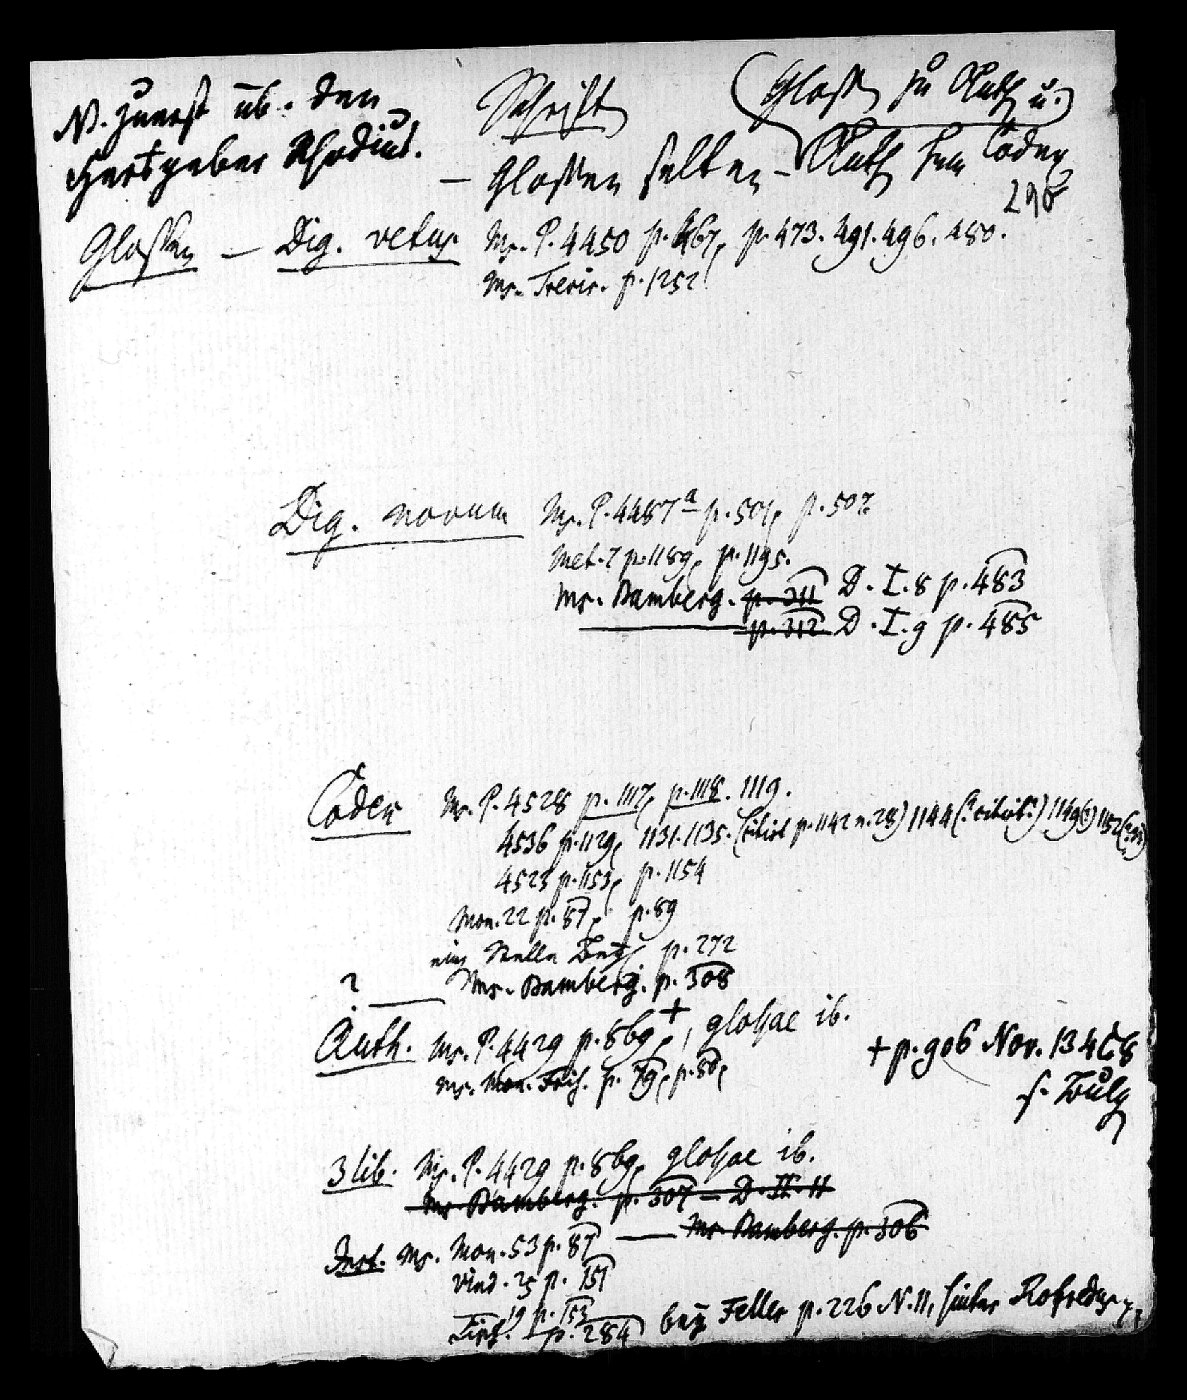 N. zuerst üb. den
Schrift
Gloss zu Auth u.
Glossen selten – Auth Codex
290
Glossen – Dig. vetus. Ms. P. 4450 p. 467, p. 473. 491. 496. 480.
Ms. Trevir. p. 1252
Dig. novum Ms. P. 4487a p. 501, p. 507
Met. 7 p. 1189, p. 1195.
Ms. Bamberg. p. 311 D. I. 8 p. 483
p. 312 D. I. 9 p. 485
Codex Ms. P. 4528 p. 1117, p. 1118. 1119.
4536 p. 1129, 1131. 1135. p. 1142 n. 28) 1144 1149 1152
4523 p. 1153, p. 1154
Mon. 22 p. 87, p. 89
eine Stelle p. 272
? — Ms. Bamberg. p. 308
Auth. Ms. P. 4429 p. 869, +, glossae ib.
+ p. 906 Nov. 134 C 8
Ms. Mon. p. 79, p. 80,
3 lib. Ms. P. 4429 p. 869, glossae ib.
Ms. Bamberg. p. 307 – D. II. 11
— Ms. Bamberg. p. 306
Inst. Ms. Mon. 53 p. 87
Vind. 25 p. 151
19 p. 153
p. 284 bey Feller p. 226 N. 11, hinter Rofredus